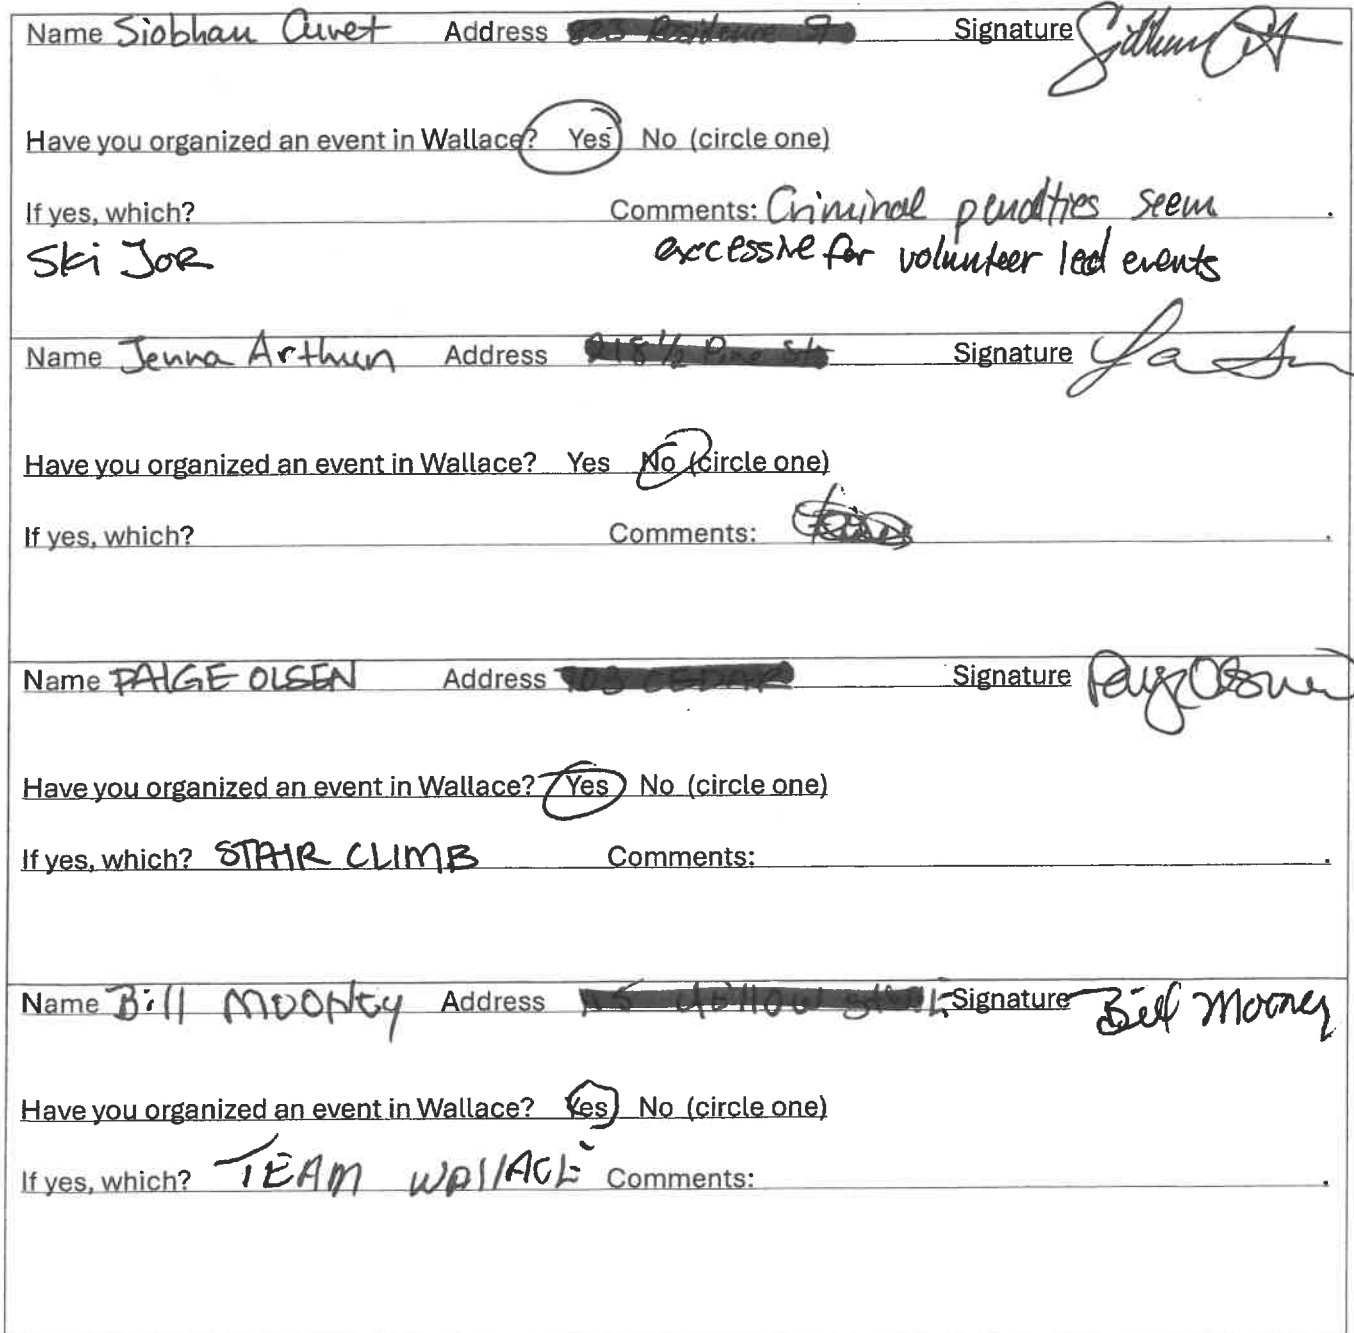 Name Siobhan Curet Address Signature
Have you organized an event in Wallace? Yes No (circle one)
If yes, which? Comments: Criminal penalties seem .
Ski Jor excessive for volunteer led events
Name Jenna Arthun Address Signature
Have you organized an event in Wallace? Yes No (circle one)
If yes, which? Comments: .
Name PAIGE OLSEN Address Signature
Have you organized an event in Wallace? Yes No (circle one)
If yes, which? STAIR CLIMB Comments: .
Name Bill Mooney Address Signature Bill Mooney
Have you organized an event in Wallace? Yes No (circle one)
If yes, which? TEAM WAllACE Comments: .